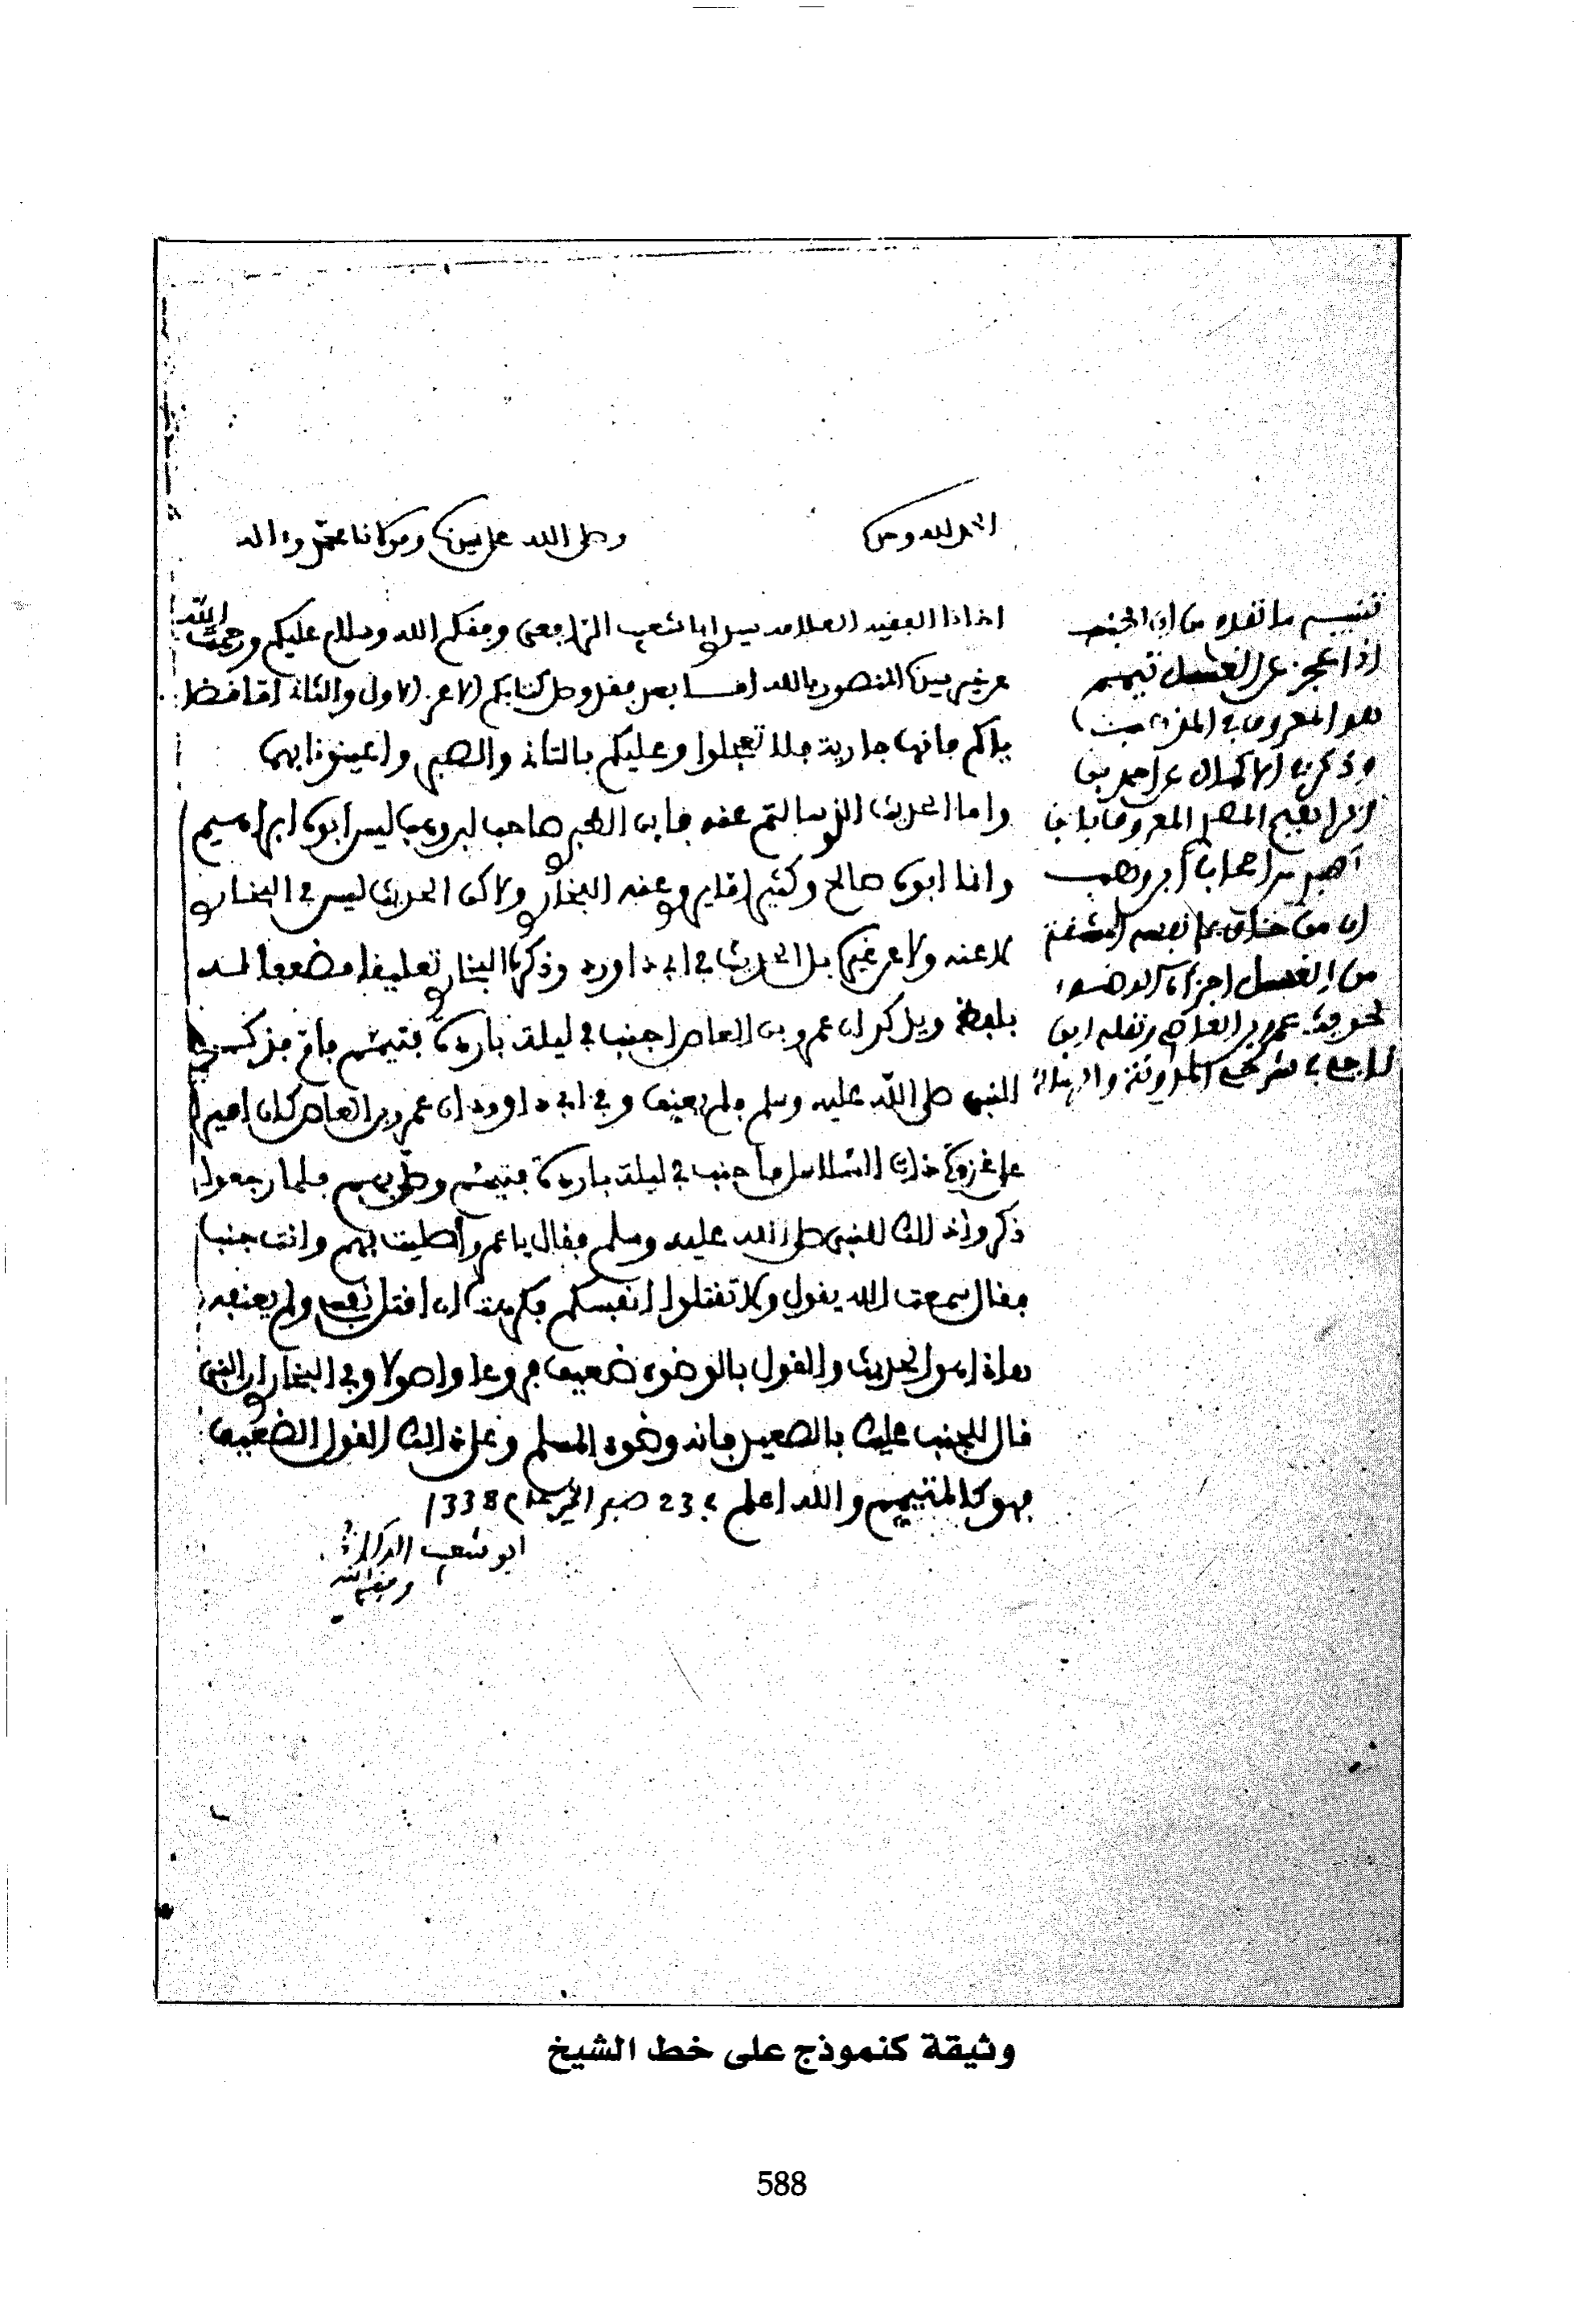 الحمد لله وحده
وصلى الله على سيدنا ومولانا محمد وءاله
اخانا الفقيه العلامة سيدي ابا شعيب وفقكم الله وسلام عليكم ورحمت الله
عن خير سيدنا المنصور بالله اما بعد فقد وصل كتابكم الاعز الاول والثاني اما
بلكم فانها جارية فلا تعجلوا وعليكم بالتاني والصبر واعينونا بهما
واما الحديث الذي سالتم عنه فابن الطبري صاحب ليس ابوه ابراهيم
وانما ابوه صالح وعنه البخاري ولاكن الحديث ليس في البخاري
لا عنه ولا عن غيره بل الحديث في ابي داوود وذكره البخاري تعليقا مضعفا لسنده
بلفظ ويذكر ان عمرو بن العاص اجنب في ليلة باردة فتيمم
للنبي صلى الله عليه وسلم فلم يعنف وفي ابي داوود ان عمرو بن العاص كان اميرا
على غزوة ذات السلاسل فاجنب في ليلة باردة فتيمم وصلى بهم فلما رجعوا
ذكروا ذلك للنبي صلى الله عليه وسلم فقال يا عمرو اصليت بهم وانت جنب
فقال سمعت الله يقول ولا تقتلوا انفسكم فكرهت ان اقتل نفسي ولم يعنفه
هاذا هو الحديث والقول بالوضوء ضعيف فروعا واصولا وفي البخاري ان النبي
قال للجنب عليك بالصعيد فانه وضوء المسلم وعلى ذالك القول الضعيف
فهو كالمتيمم والله اعلم في 23 صفر الخير عام 1338
ابو شعيب الدكالي
وفقه الله
تتميم ما تقدم من ان الجنب
اذا عجز عن الغسل تيمم
هو المعروف في المذهب
وذكر عن احمد بن
المصري المعروف بابن
الطبري من اصحاب ابن وهب
ان من خاف على نفسه
من الغسل اجزأه الوضوء
لحديث عمرو بن العاص ونقله ابن
ناجي في شرحي المدونة والرسالة
وثيقة كنموذج على خط الشيخ
588